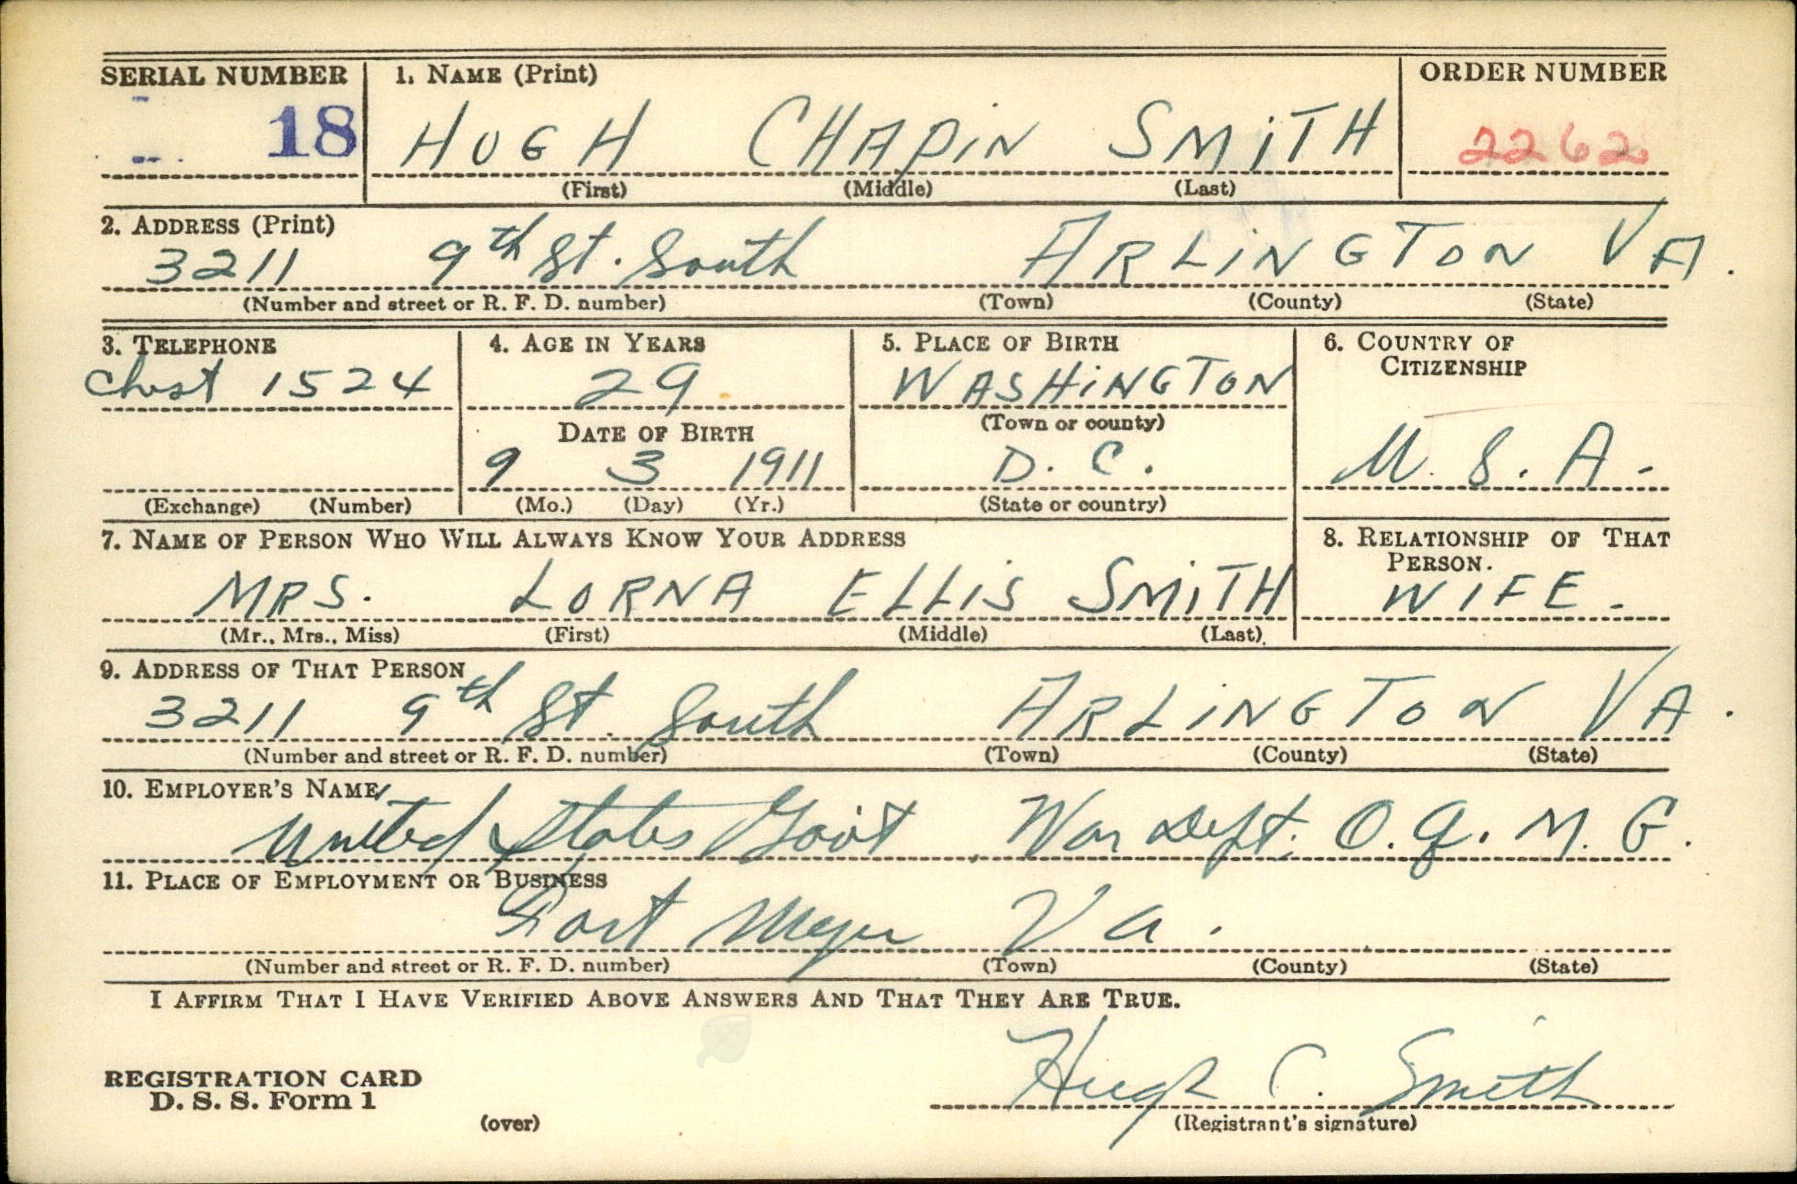 SERIAL NUMBER 1. NAME (Print) ORDER NUMBER
18 HUGH CHAPIN SMITH 2262
(First) (Middle) (Last)
2. ADDRESS (Print)
3211 9th St. South ARLINGTON VA.
(Number and street or R. F. D. number) (Town) (County) (State)
3. TELEPHONE 4. AGE IN YEARS 5. PLACE OF BIRTH 6. COUNTRY OF CITIZENSHIP
Chest 1524 29 WASHINGTON
(Town or county)
DATE OF BIRTH
9 3 1911 D. C. U. S. A.
(Exchange) (Number) (Mo.) (Day) (Yr.) (State or country)
7. NAME OF PERSON WHO WILL ALWAYS KNOW YOUR ADDRESS 8. RELATIONSHIP OF THAT PERSON.
MRS. LORNA ELLIS SMITH WIFE -
(Mr., Mrs., Miss) (First) (Middle) (Last)
9. ADDRESS OF THAT PERSON
3211 9th St. South ARLINGTON VA.
(Number and street or R. F. D. number) (Town) (County) (State)
10. EMPLOYER'S NAME
United States Govt War Dept. O. Q. M. G.
11. PLACE OF EMPLOYMENT OR BUSINESS
Fort Meyer Va.
(Number and street or R. F. D. number) (Town) (County) (State)
I AFFIRM THAT I HAVE VERIFIED ABOVE ANSWERS AND THAT THEY ARE TRUE.
REGISTRATION CARD
D. S. S. Form 1
Hugh C. Smith
(over) (Registrant's signature)